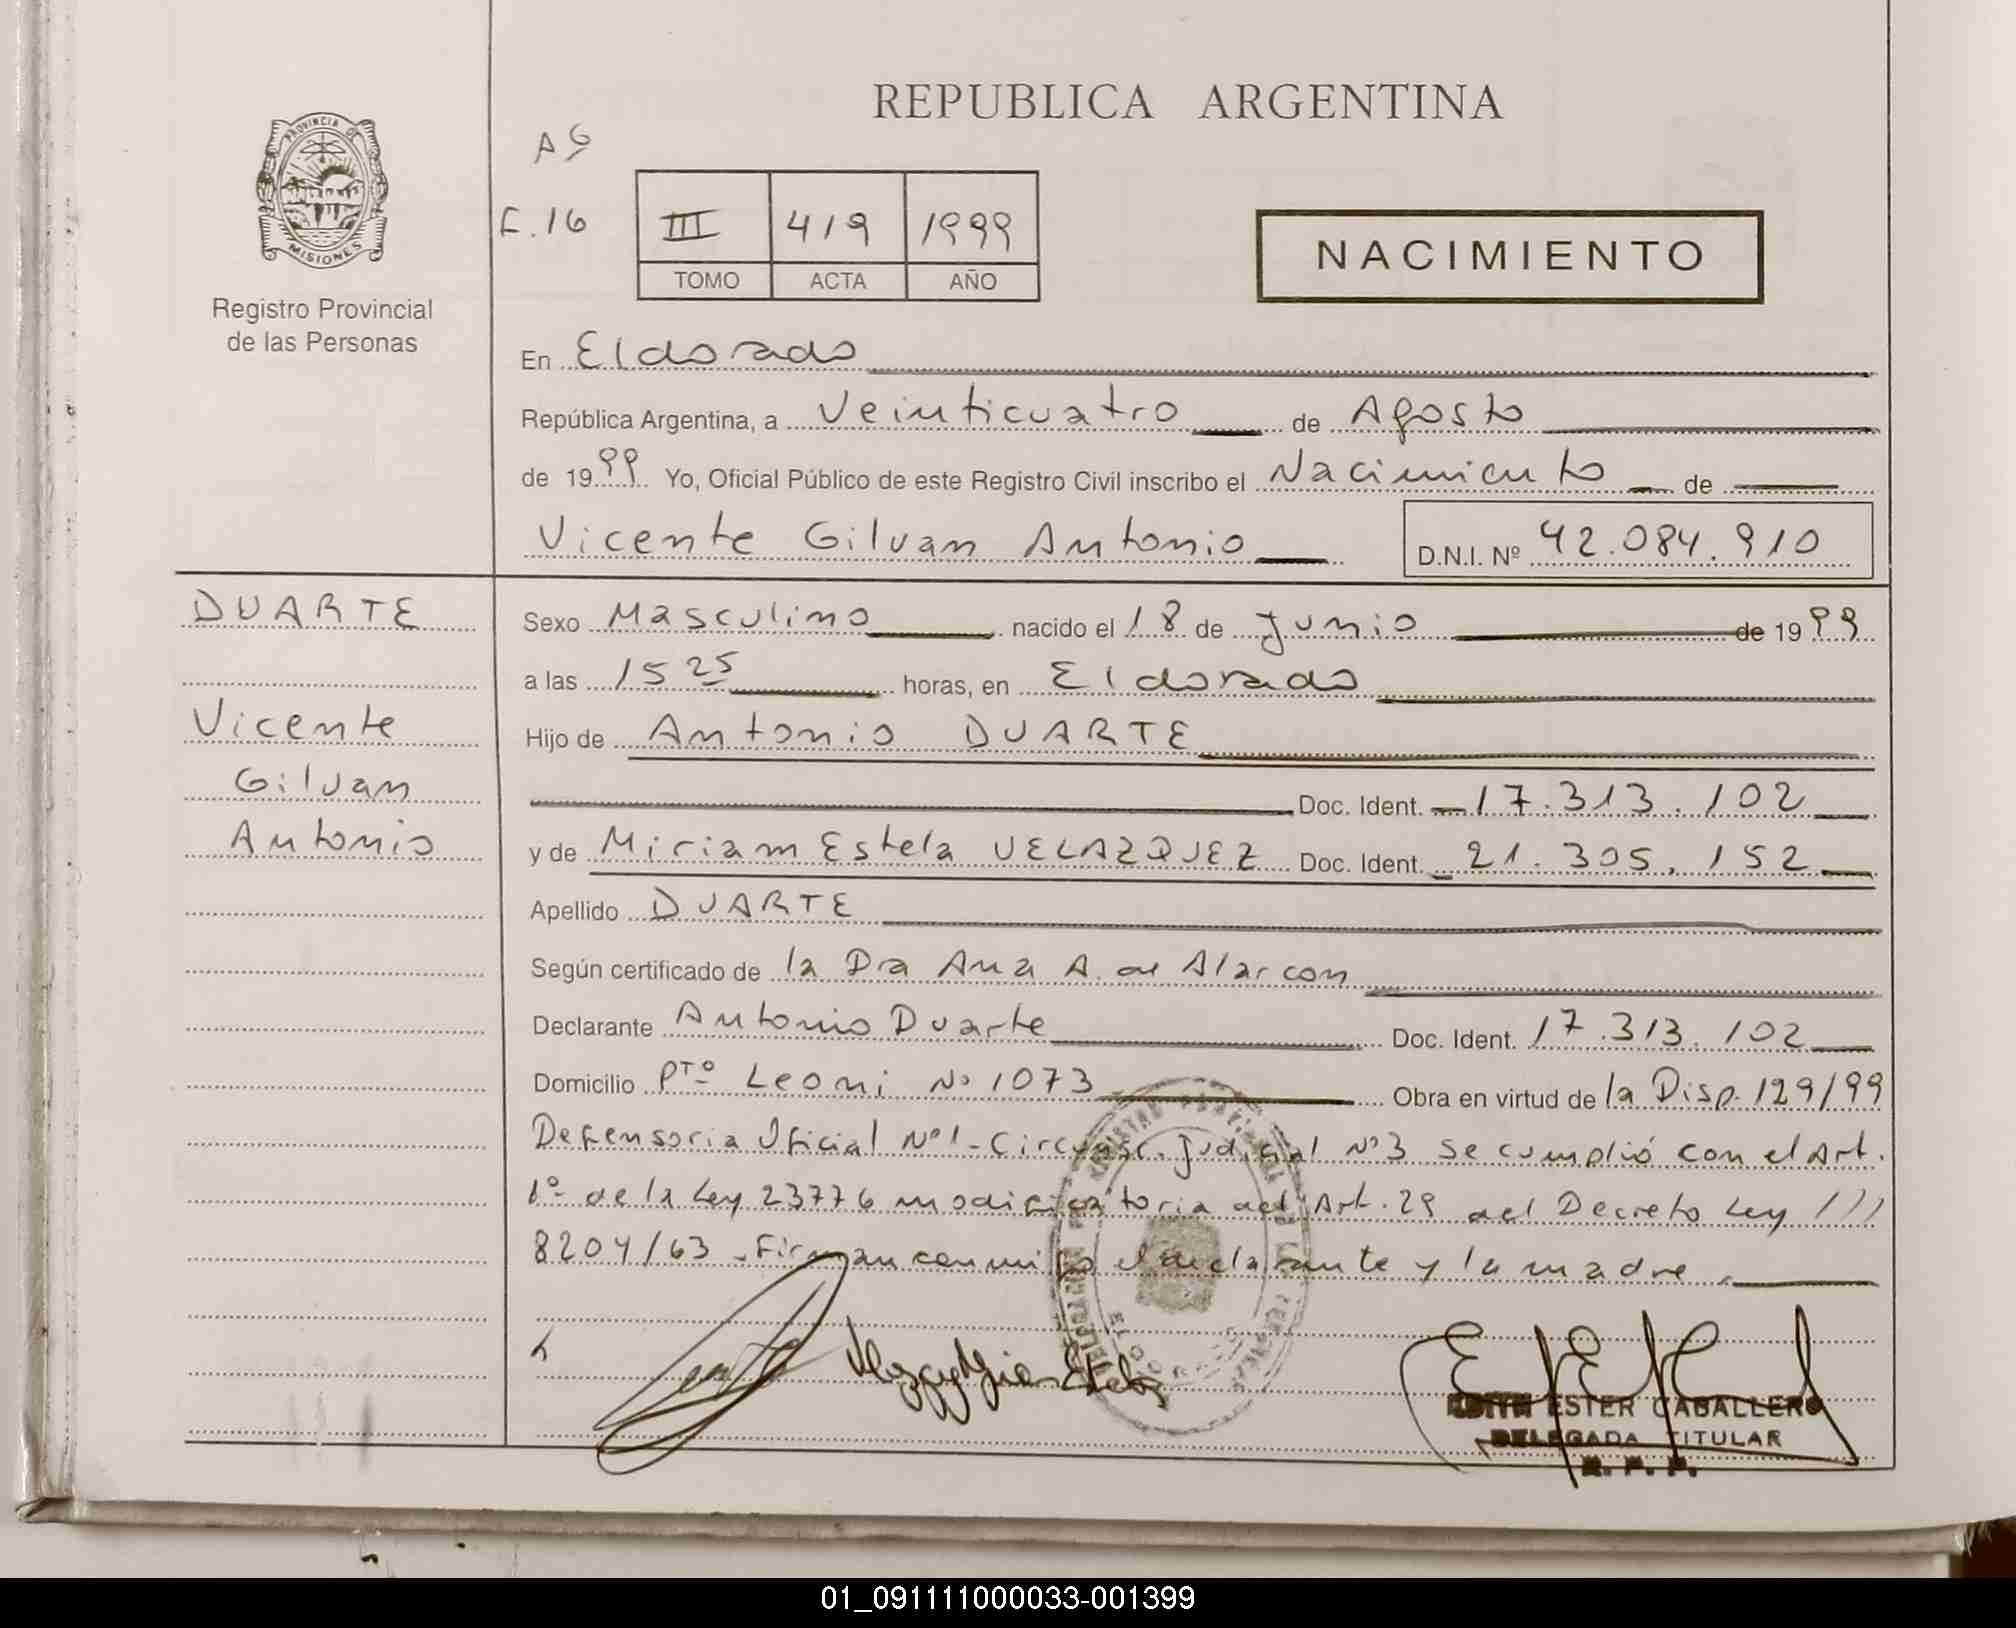 REPUBLICA ARGENTINA
PROVINCIA DE
MISIONES
Registro Provincial
de las Personas
AG
F.16
III 419 1999
TOMO ACTA AÑO
NACIMIENTO
En Eldorado
República Argentina, a Veinticuatro de Agosto
de 1999 Yo, Oficial Público de este Registro Civil inscribo el Nacimiento de
Vicente Gilvan Antonio D.N.I. Nº 42.084.910
DUARTE
Vicente
Gilvan
Antonio
Sexo Masculino nacido el 18 de Junio de 1999
a las 15 25 horas, en Eldorado
Hijo de Antonio DUARTE
Doc. Ident. 17.313.102
y de Miriam Estela VELAZQUEZ Doc. Ident. 21.305.152
Apellido DUARTE
Según certificado de la Dra Ana A. de Alarcon
Declarante Antonio Duarte Doc. Ident. 17.313.102
Domicilio Pto Leoni Nº 1073 Obra en virtud de la Disp. 129/99
Defensoria Oficial Nº1-Circunsc. Judicial Nº3 se cumplió con el Art.
1º de la Ley 23776 modificatoria del Art. 29 del Decreto Ley ///
8204/63. Firman conmigo el declarante y la madre.
EDITH ESTER CABALLERO
DELEGADA TITULAR
R. P. P.
01_091111000033-001399